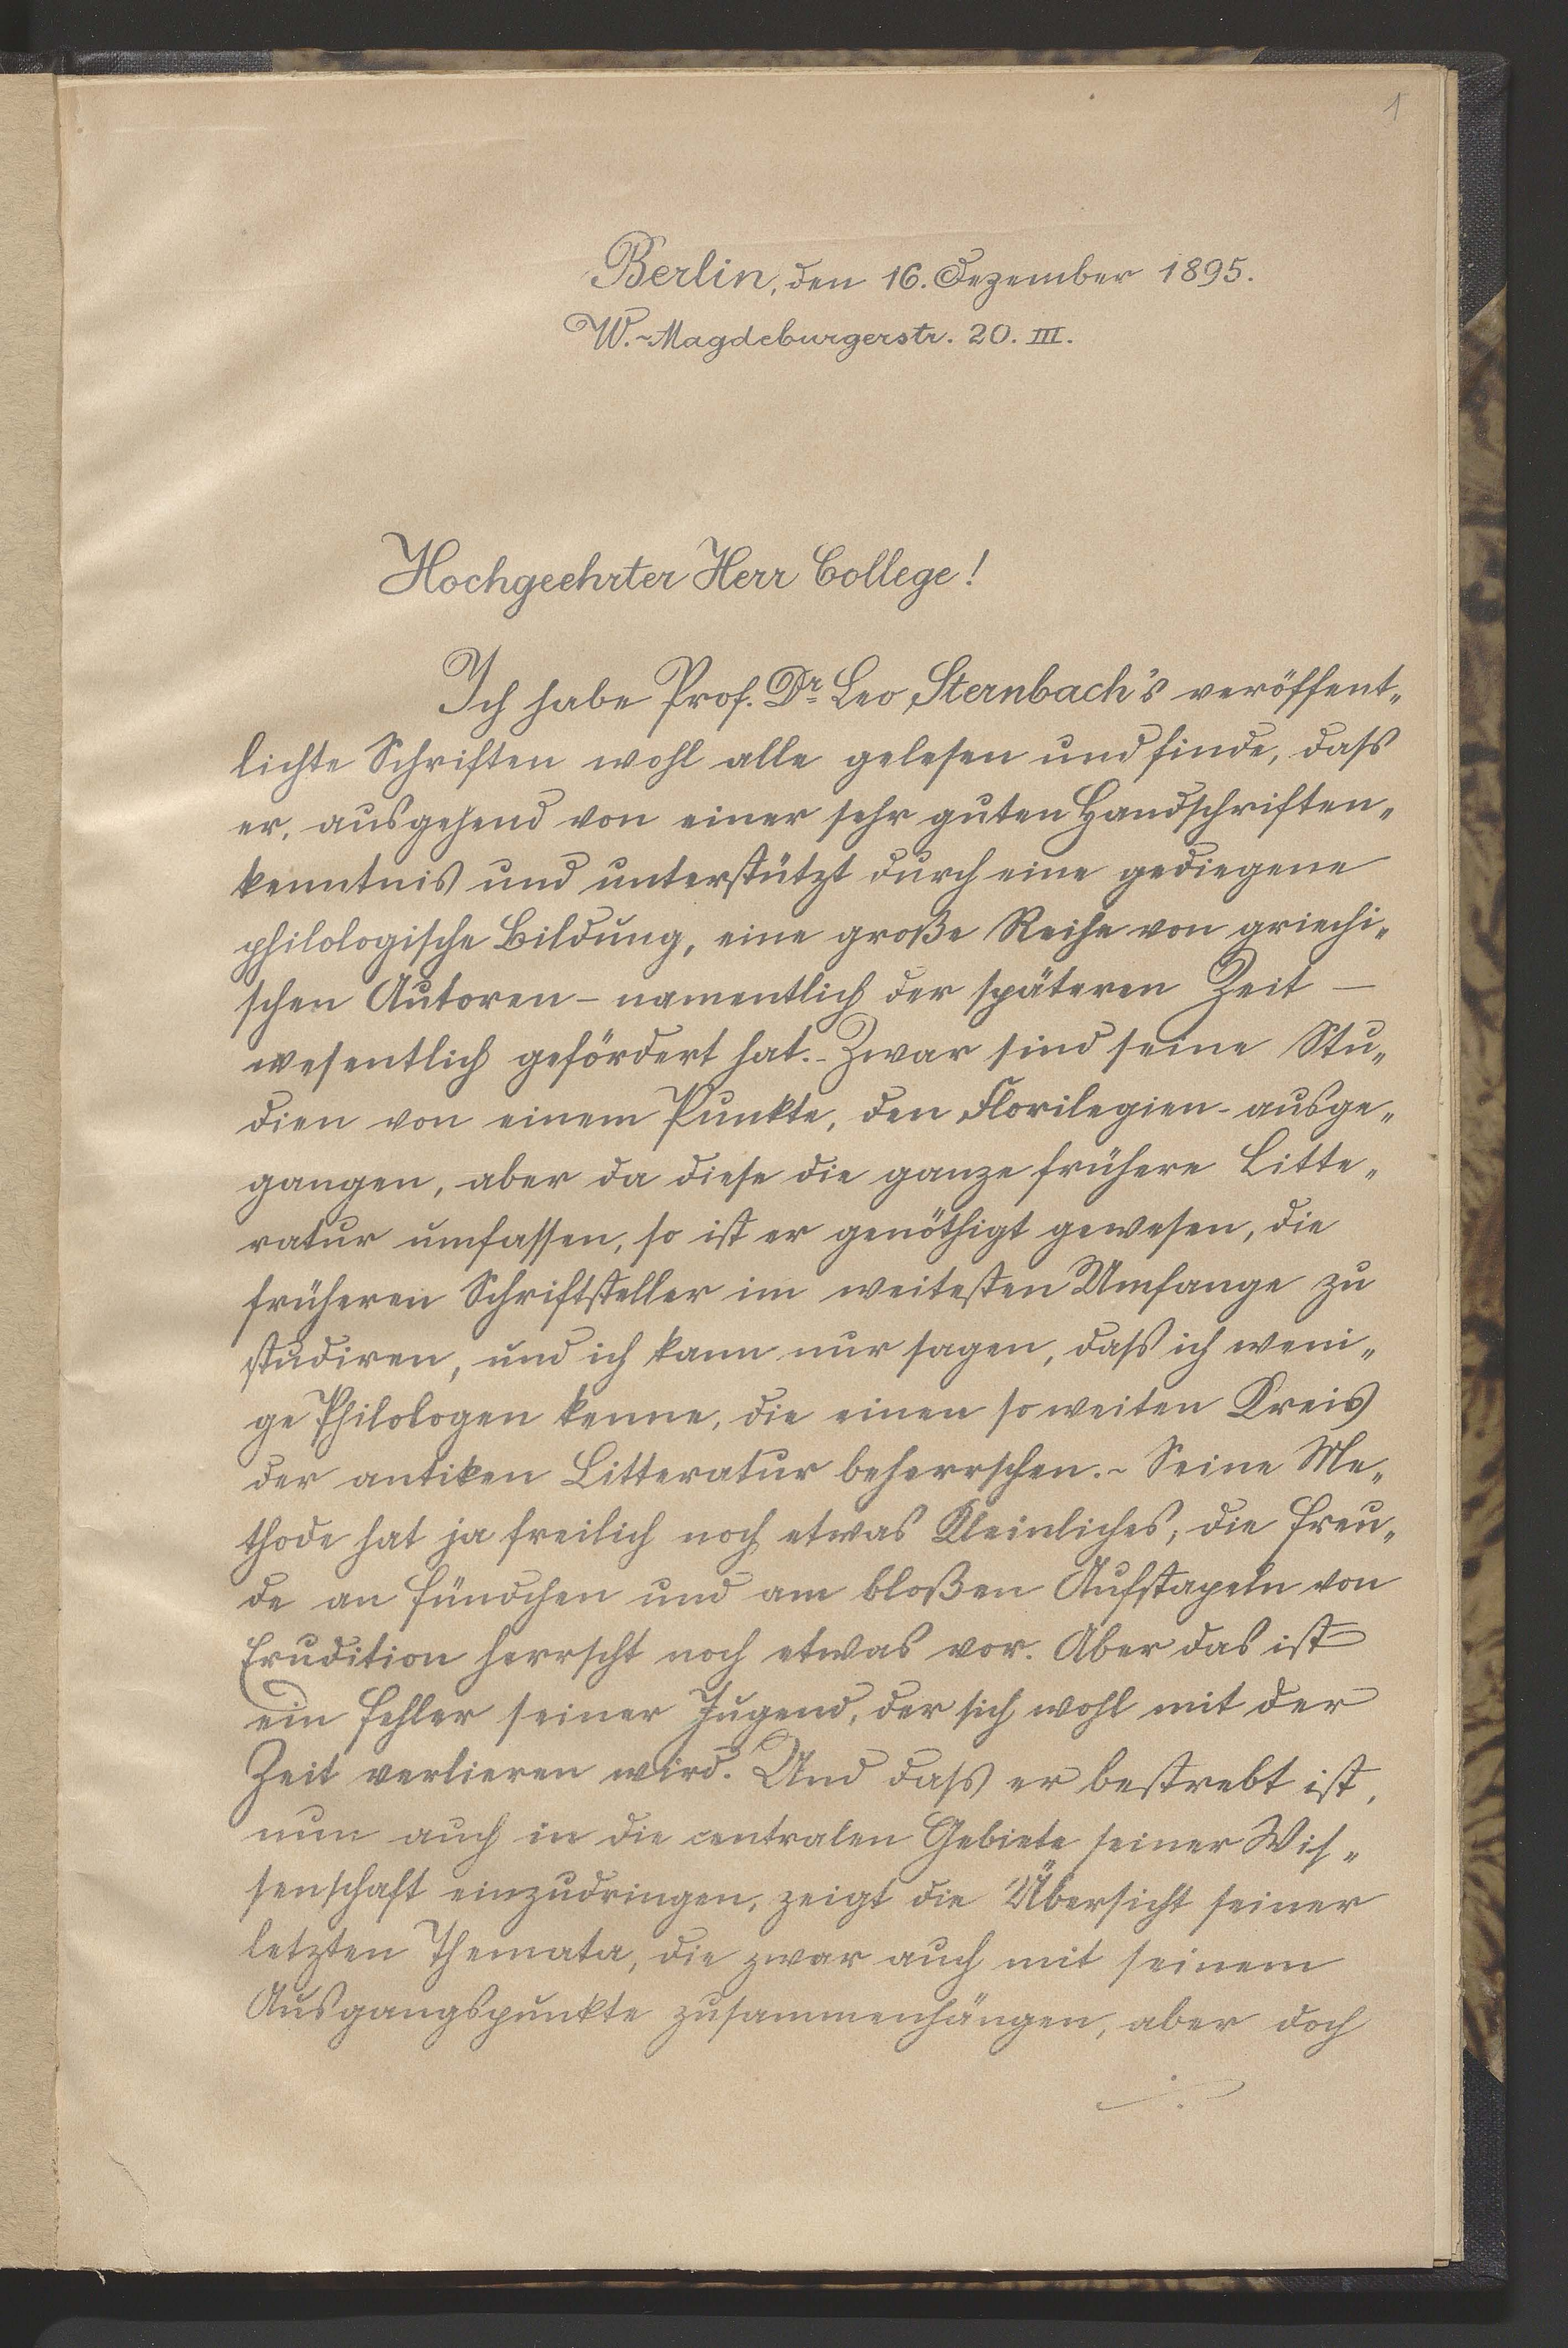 1
Berlin, den 16. Dezember 1895.
W.-Magdeburgerstr. 20. III.
Hochgeehrter Herr College!
Ich habe Prof. Dr Leo Sternbach's veröffent-
lichte Schriften wohl alle gelesen und finde, dass
er, ausgehend von einer sehr guten Handschriften-
kenntnis und unterstützt durch eine gediegene
philologische Bildung, eine große Reihe von griechi-
schen Autoren - namentlich der späteren Zeit -
wesentlich gefördert hat. - Zwar sind seine Stu-
dien von einem Punkte, den Florilegien - ausge-
gangen, aber da diese die ganze frühere Litte-
ratur umfassen, so ist er genöthigt gewesen, die
früheren Schriftsteller im weitesten Umfange zu
studiren, und ich kann nur sagen, dass ich weni-
ge Philologen kenne, die einen so weiten Kreis
der antiken Litteratur beherrschen. - Seine Me-
thode hat ja freilich noch etwas Kleinliches, die Freu-
de an Fündchen und am bloßen Aufstapeln von
Erudition herrscht noch etwas vor. Aber das ist
ein Fehler seiner Jugend, der sich wohl mit der
Zeit verlieren wird. Und dass er bestrebt ist,
nun auch in die centralen Gebiete seiner Wis-
senschaft einzudringen, zeigt die Übersicht seiner
letzten Themata, die zwar auch mit seinem
Ausgangspunkte zusammenhängen, aber doch
./.